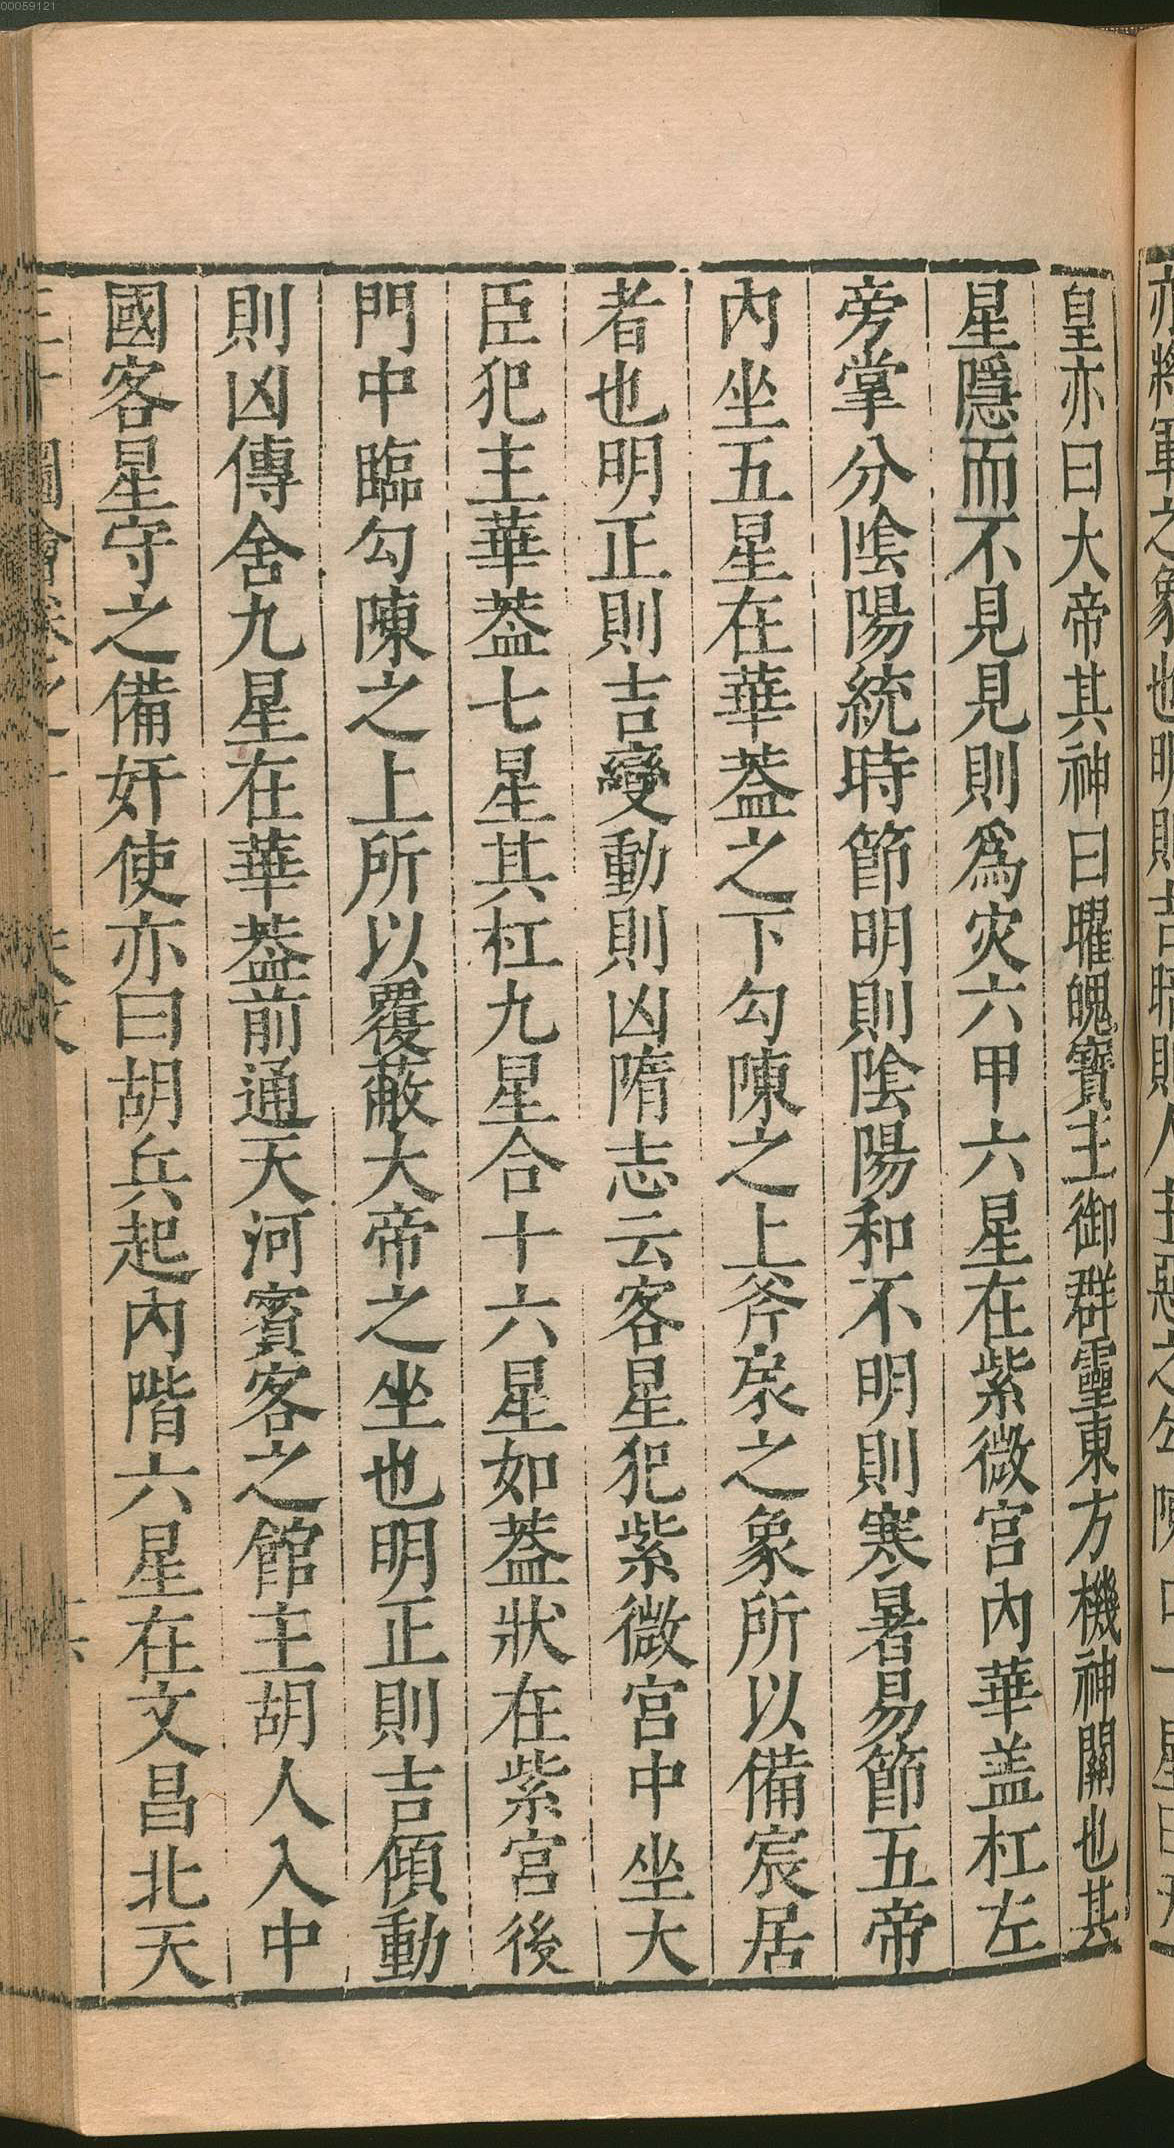 亦將軍之象也明則吉暗則人主惡之勾陳口一星曰天
皇亦曰大帝其神曰曜魄寶主御群靈東方機神關也其
星隱而不見見則爲灾六甲六星在紫微宮內華盖杠左
旁掌分陰陽統時節明則陰陽和不明則寒暑易節五帝
內坐五星在華葢之下勾陳之上斧扆之象所以備宸居
者也明正則吉變動則凶隋志云客星犯紫微宮中坐大
臣犯主華葢七星其杠九星合十六星如葢狀在紫宮後
門中臨勾陳之上所以覆蔽大帝之坐也明正則吉傾動
則凶傳舍九星在華葢前通天河賓客之館主胡人入中
國客星守之備奸使亦曰胡兵起內階六星在文昌北天
圖會卷之
00059121